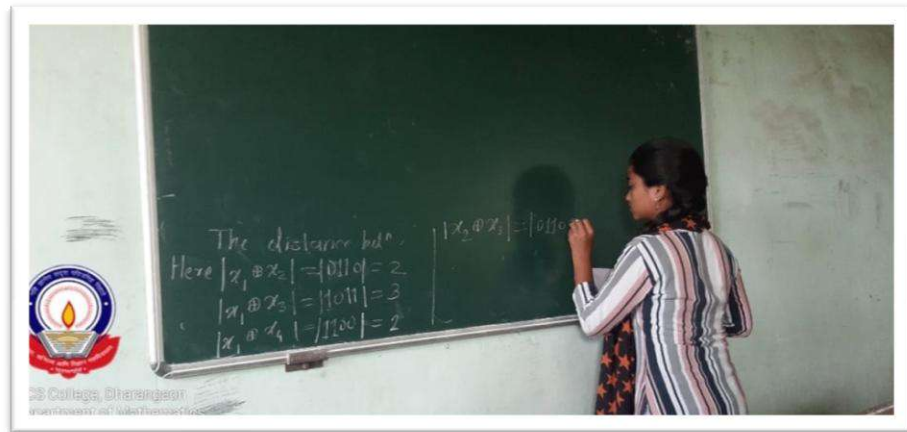 The distance betn.
Here |x₁ ⊕ x₂| = |0110| = 2
|x₁ ⊕ x₃| = |1011| = 3
|x₁ ⊕ x₄| = |1100| = 2
|x₂ ⊕ x₃| = |0110
CS College, Dharangaon
Department of Mathematics